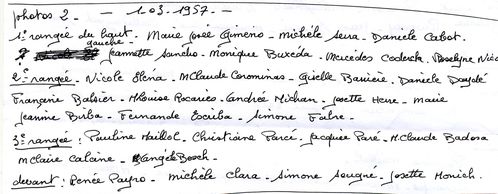 photos 2. - - 1.03.1957 - -
1ère rangée du haut. Marie josee Gimeno - michèle Serra - Danièle Cabot.
gauche
Jeannette Sancho - Monique Buxéda - Mercédès Coderch -
2e rangée - Nicole Elena - MClaude Corominas - Gisèle Barrière - Danièle
Françoise Balsier - MLouise Rocaries - Candrée Michan - Josette Here - Marie
jeanne Birba - Fernande Escriba - Simone Fabre -
3e rangée : Pauline Maillol - Christiane Parcé - Jacquie Paré - M.Claude Badosa
mClaire Calcine - Angèle Bosch -
devant : Renée Payro - Michèle Clara - Simone Sougné - Josette Monich.